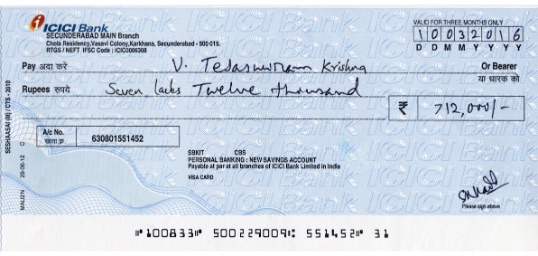 ICICI Bank
SECUNDERABAD MAIN Branch
Chola Residency,Vasavi Colony,Karkhana, Secunderabad - 500 015.
RTGS / NEFT IFSC Code : ICIC0006308
VALID FOR THREE MONTHS ONLY
10032016
D D M M Y Y Y Y
Pay अदा करें V. Krishna Or Bearer
या धारक को
Rupees रुपये Seven lacks Twelve thousand
₹ 712,000/-
A/c No.
खाता क्र.
630801551452
SBKIT CBS
PERSONAL BANKING : NEW SAVINGS ACCOUNT
Payable at par at all branches of ICICI Bank Limited in India
VISA CARD
Please sign above
⑈100833⑈ 500229009⑆ 551452⑈ 31